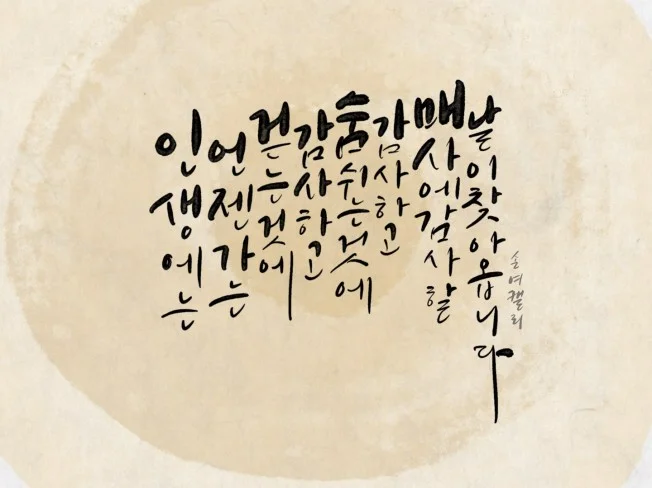 인생에는
언젠가는
걷는것에
감사하고
숨쉬는것에
감사하고
매사에감사할
날이찾아옵니다